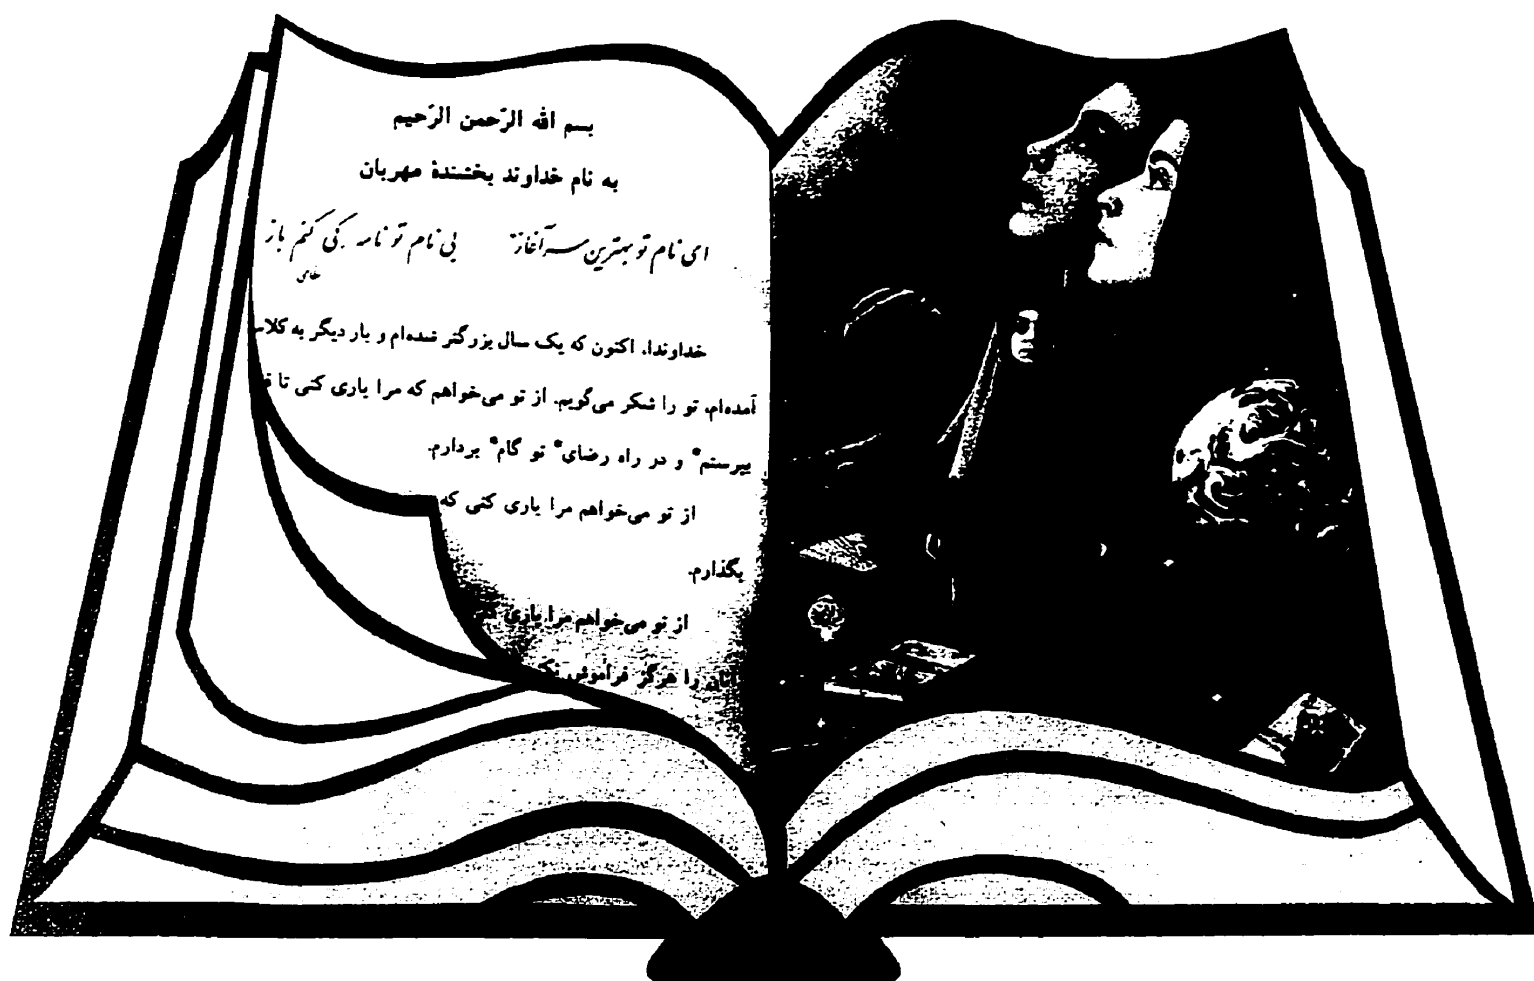 بسم الله الرّحمن الرّحیم
به نام خداوند بخشندهٔ مهربان
ای نام تو بهترین سرآغاز بی نام تو نامه کی کنم باز
نظامی
خداوندا، اکنون که یک سال بزرگتر شده‌ام و بار دیگر به کلاس
آمده‌ام، تو را شکر می‌گویم. از تو می‌خواهم که مرا یاری کنی تا
بپرستم* و در راه رضای* تو گام* بردارم.
از تو می‌خواهم مرا یاری کنی که
بگذارم.
از تو می‌خواهم مرا یاری
را هرگز فراموش